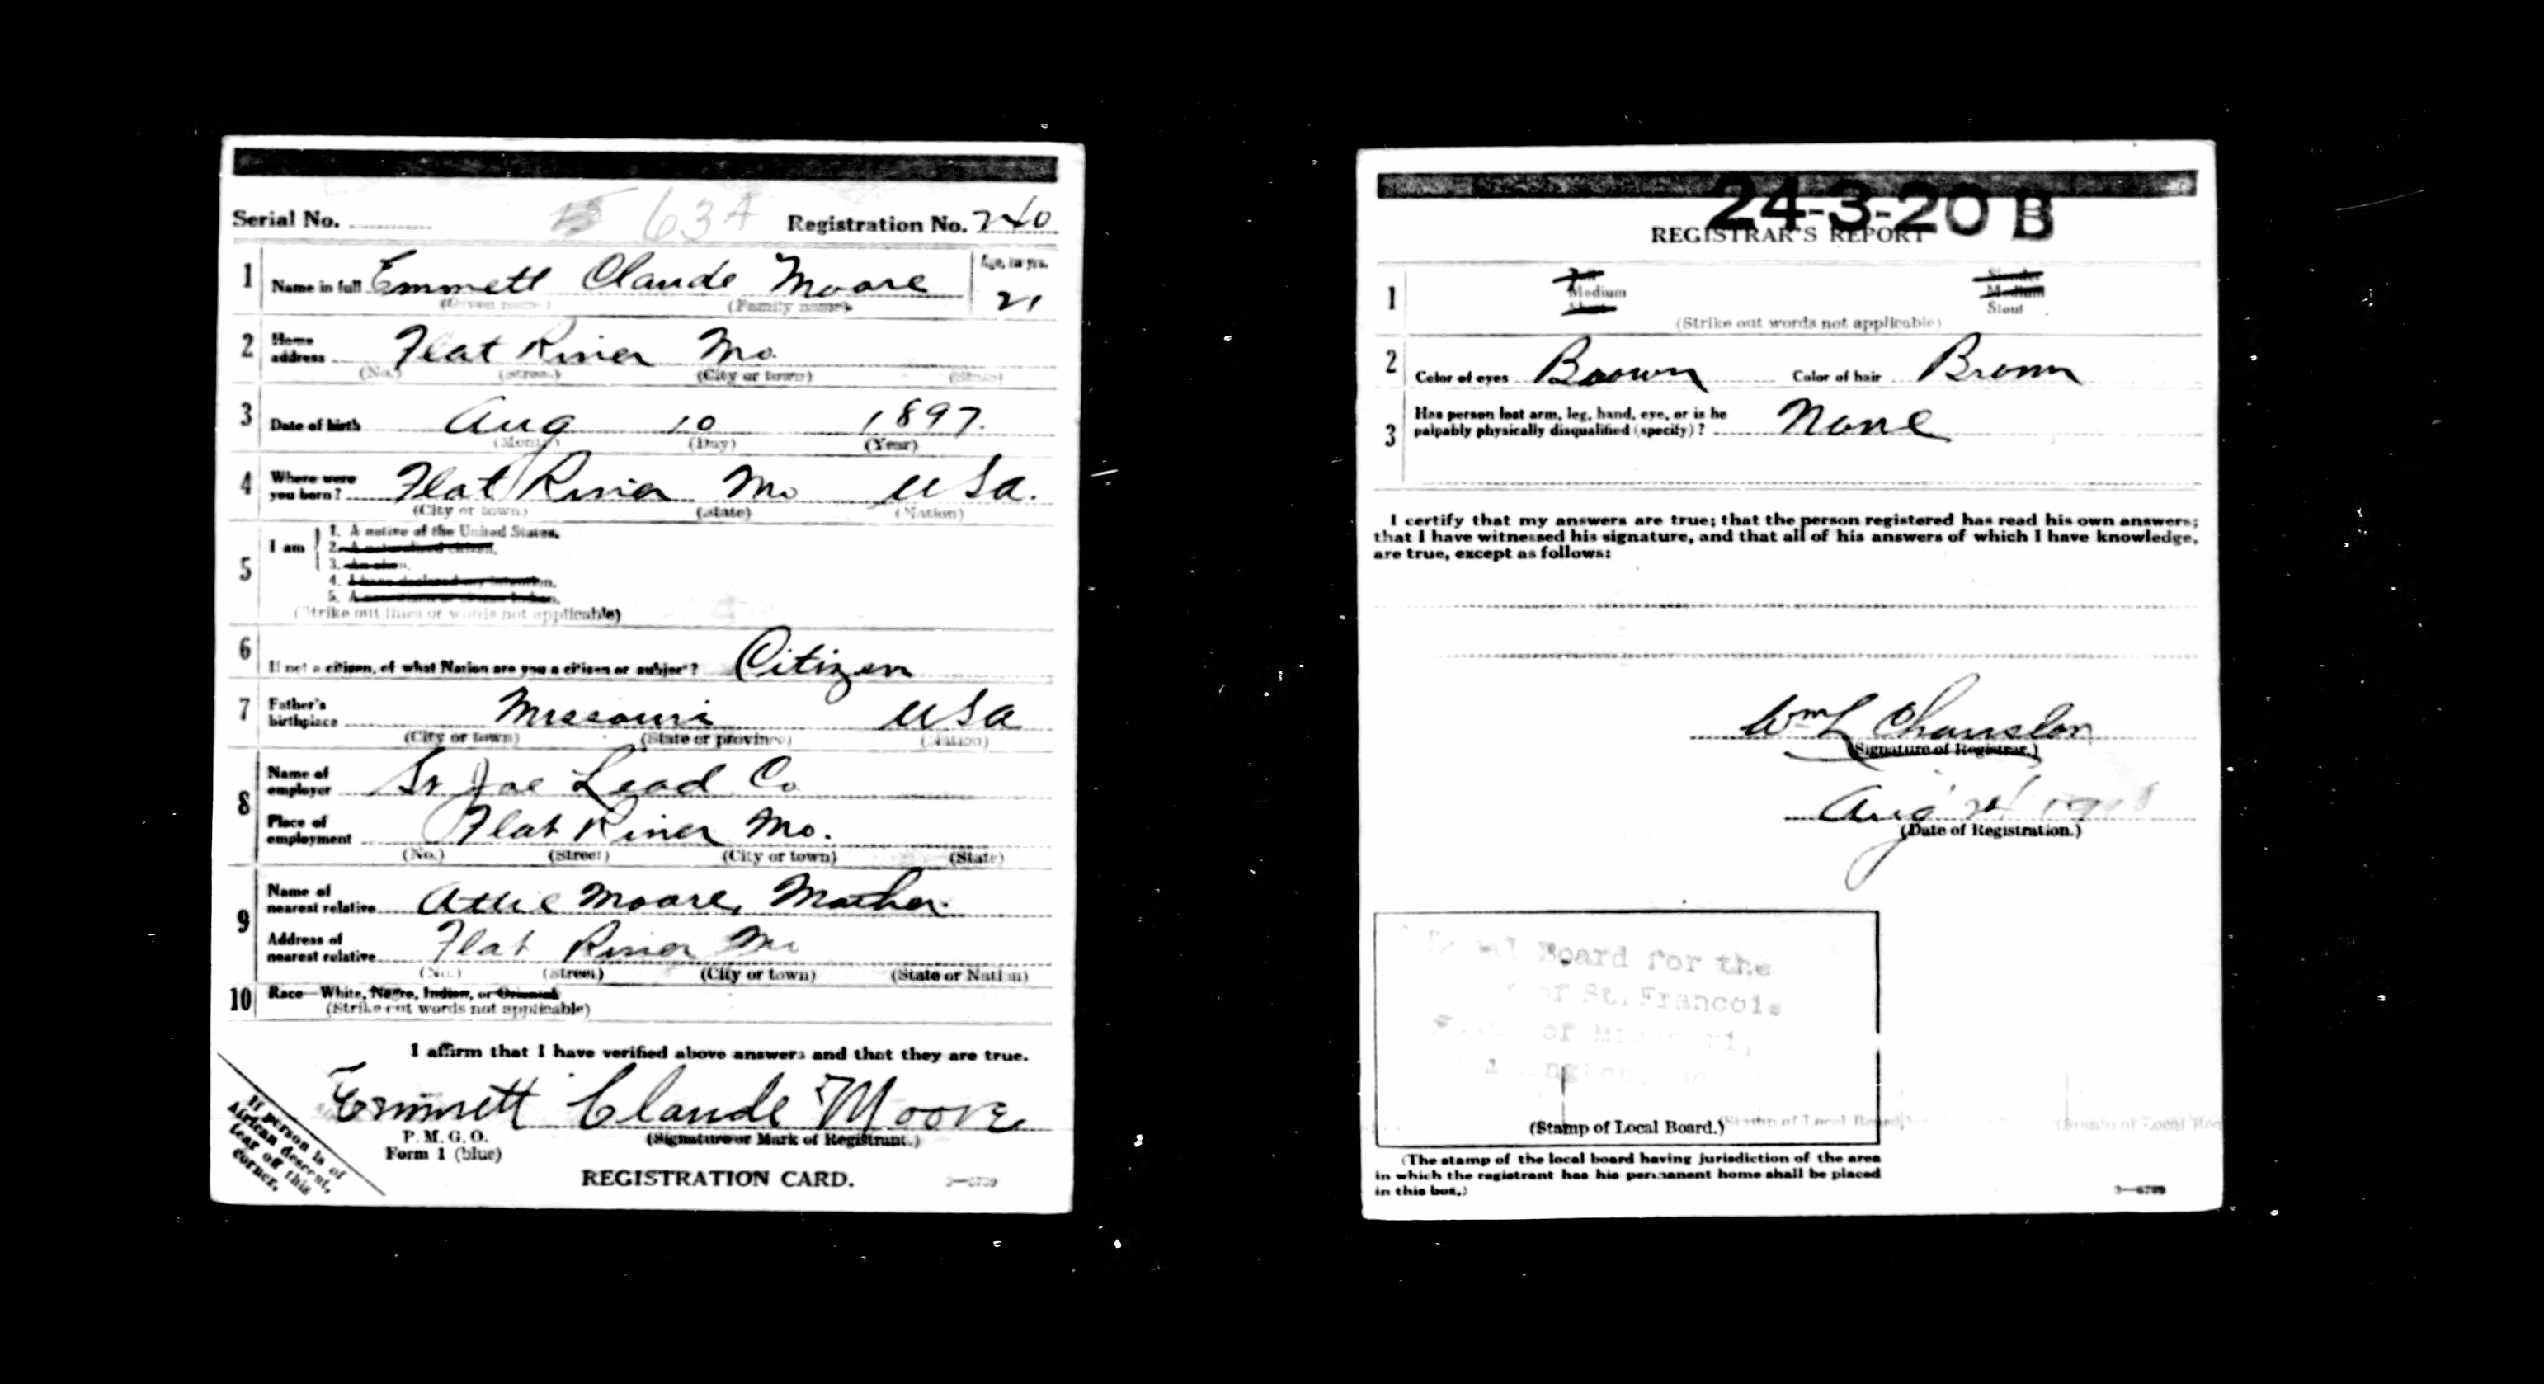 Serial No. 634 Registration No. 240
1 Name in full Emmett Claude Moore Age, in yrs.
(Given name) (Family name) 21
2 Home address Flat River Mo.
(No.) (Street) (City or town) (State)
3 Date of birth Aug 10 1897.
(Month) (Day) (Year)
4 Where were you born? Flat River Mo USA.
(City or town) (State) (Nation)
5 I am 1. A native of the United States.
2. A naturalized citizen.
3. An alien.
4. I have declared my intention.
5. A
(Strike out lines or words not applicable)
6 If not a citizen, of what Nation are you a citizen or subject? Citizen
7 Father's birthplace Missouri USA
(City or town) (State or province) (Nation)
8 Name of employer St Joe Lead Co
Place of employment Flat River Mo.
(No.) (Street) (City or town) (State)
9 Name of nearest relative Attie Moore, Mother.
Address of nearest relative Flat River Mo
(No.) (Street) (City or town) (State or Nation)
10 Race—White, Negro, Indian, or Oriental
(Strike out words not applicable)
I affirm that I have verified above answers and that they are true.
Emmett Claude Moore
P. M. G. O.
Form 1 (blue)
(Signature or Mark of Registrant.)
REGISTRATION CARD.
3—6739
If person is of
African descent,
tear off this
corner.
24-3-20 B
REGISTRAR'S REPORT
1 Tall Slender
Medium Medium
Short Stout
(Strike out words not applicable)
2 Color of eyes Brown Color of hair Brown
3 Has person lost arm, leg, hand, eye, or is he
palpably physically disqualified (specify)? None
I certify that my answers are true; that the person registered has read his own answers;
that I have witnessed his signature, and that all of his answers of which I have knowledge,
are true, except as follows:
Wm L
(Signature of Registrar.)
Aug 24 1918
(Date of Registration.)
Local Board for the
of St. Francois
of Missouri,
(Stamp of Local Board.)
(The stamp of the local board having jurisdiction of the area
in which the registrant has his permanent home shall be placed
in this box.)
3—6739